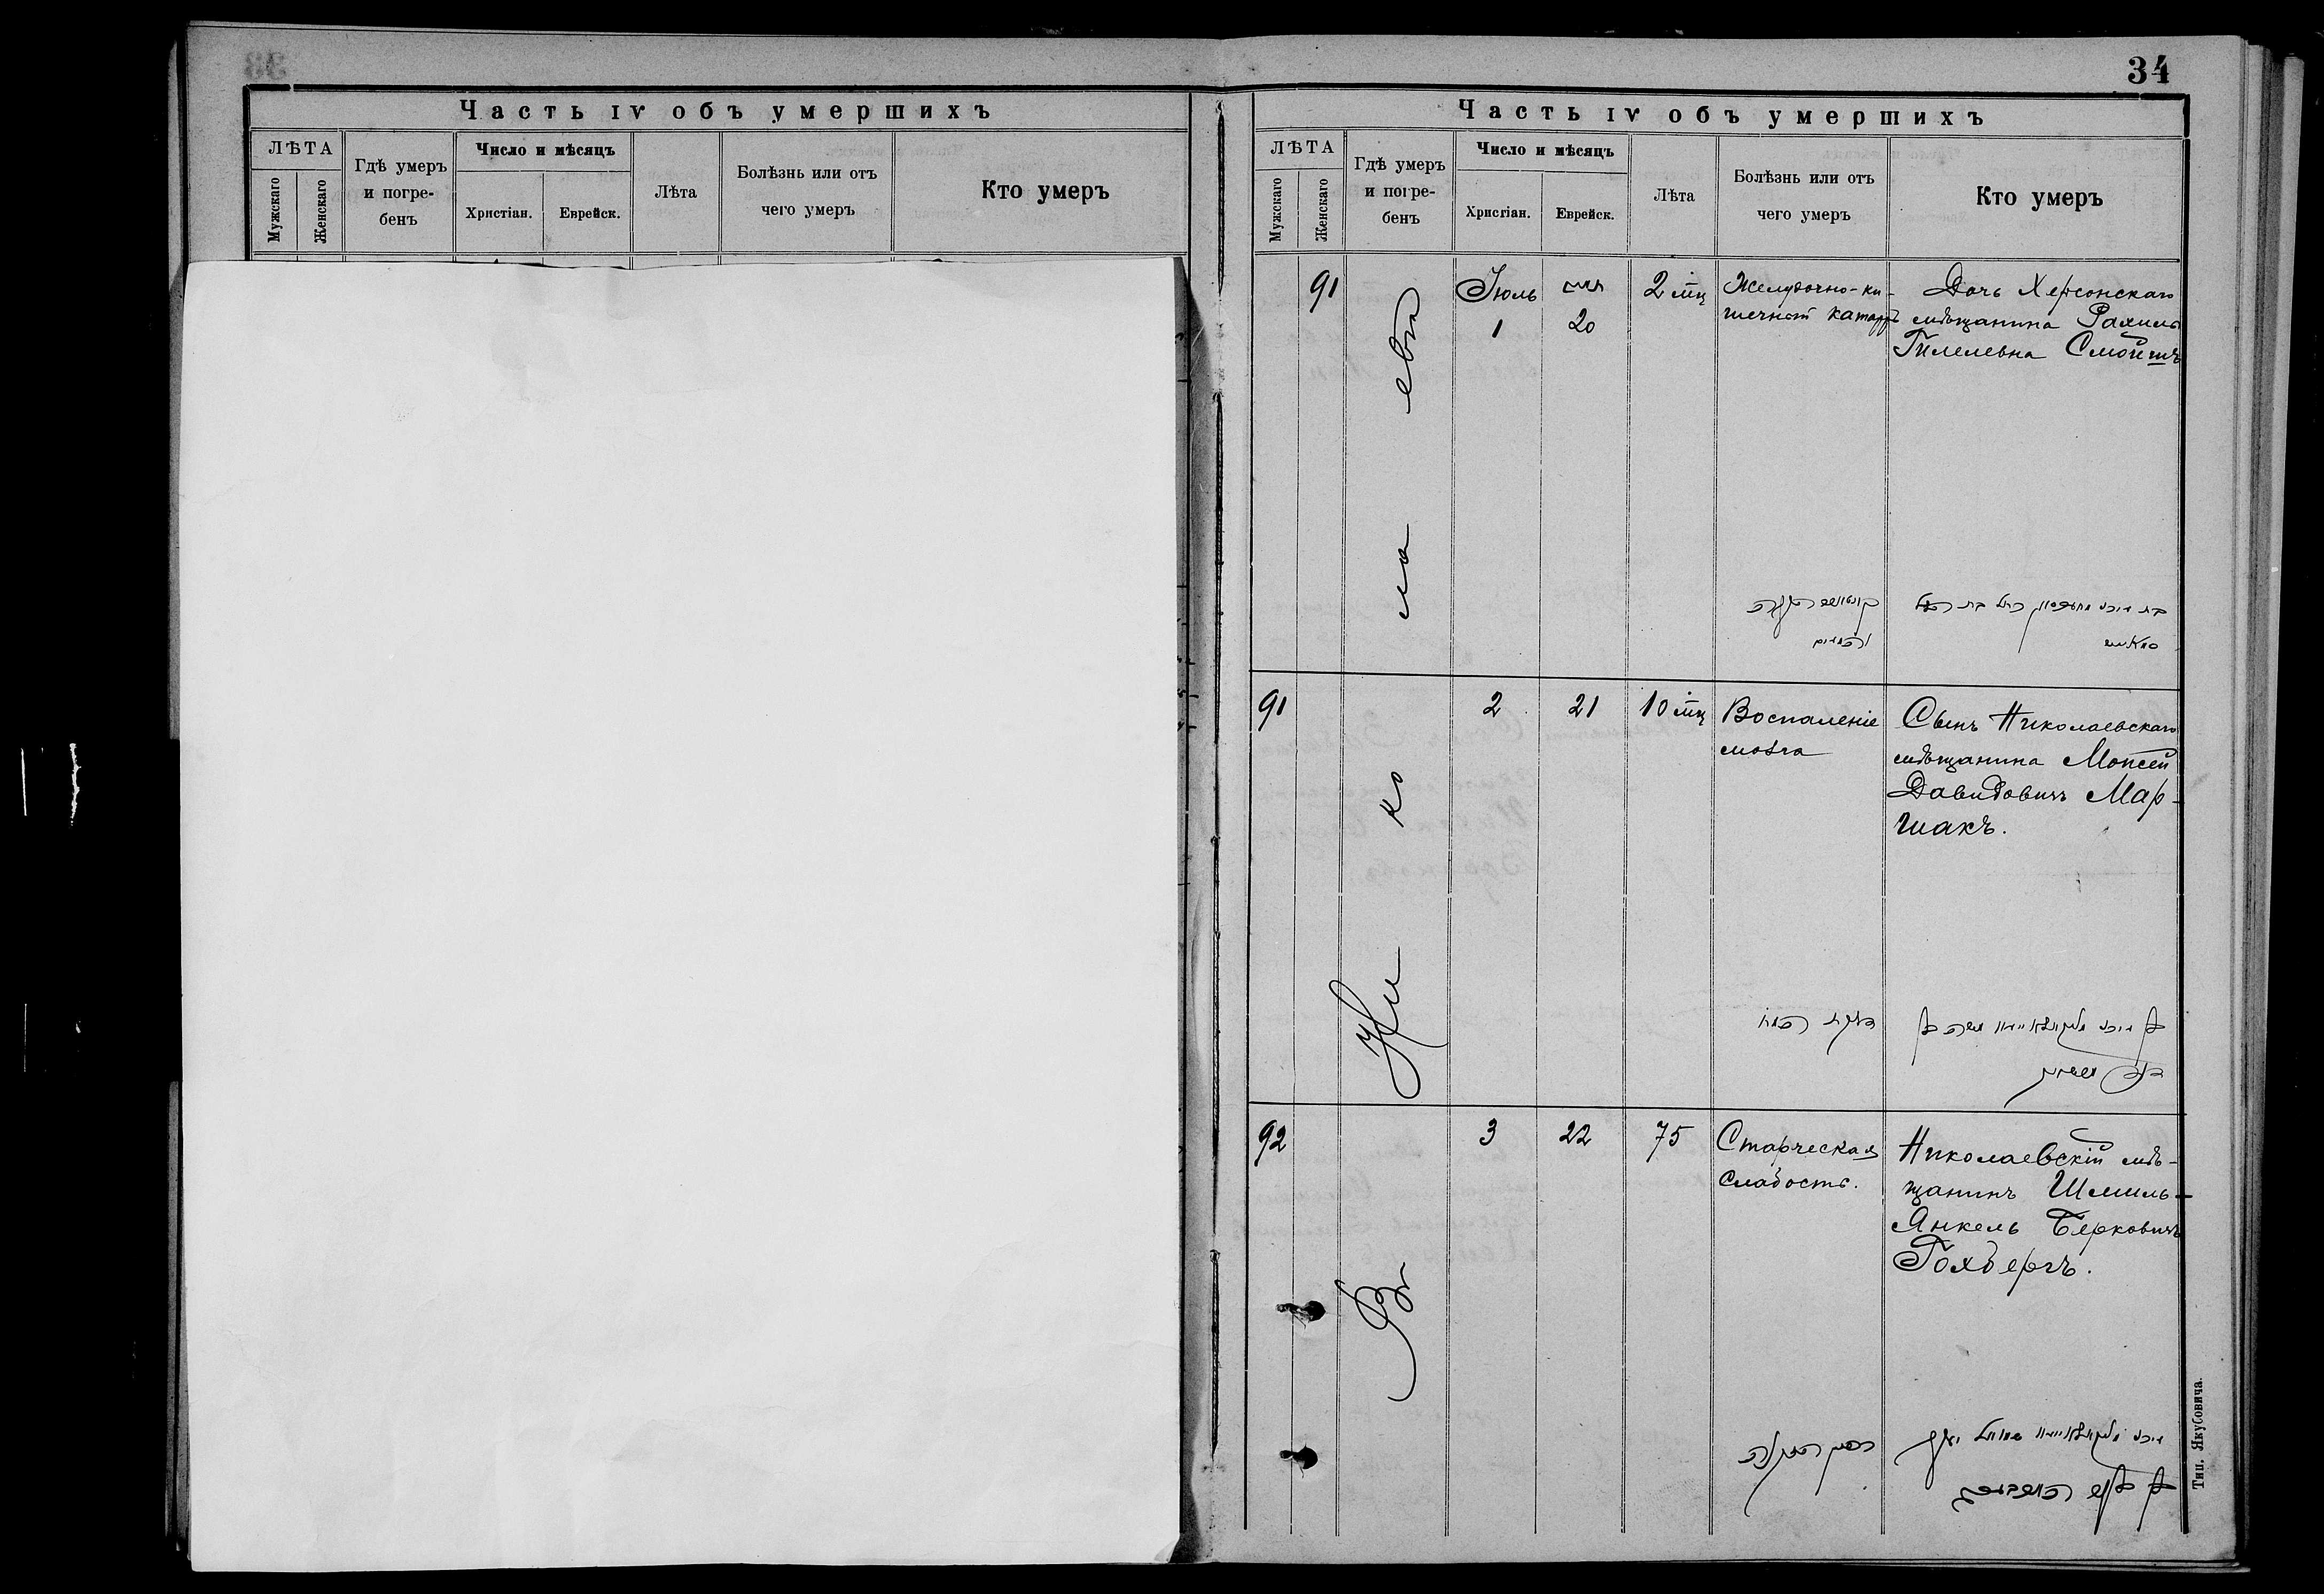 34
Часть IV объ умершихъ
ЛѢТА
Мужскаго
Женскаго
Гдѣ умеръ
и погре-
бенъ
Число и мѣсяцъ
Христіан.
Еврейск.
Лѣта
Болѣзнь или отъ
чего умеръ
Кто умеръ
Часть IV объ умершихъ
ЛѢТА
Мужскаго
Женскаго
Гдѣ умеръ
и погре-
бенъ
Число и мѣсяцъ
Христіан.
Еврейск.
Лѣта
Болѣзнь или отъ
чего умеръ
Кто умеръ
Въ Николаевѣ
91
Іюль
1
20
2 мц
Желудочно-ки-
шечный катарръ
Дочь Херсонскаго
мѣщанина Рахиль
Гилелевна
91
2
21
10 мц
Воспаленіе
мозга
Сынъ Николаевскаго
мѣщанина Моисей
Давидовичъ Мар-
шакъ.
92
3
22
75
Старческая
слабость.
Николаевскій мѣ-
щанинъ Шмиль-
Янкель Берковичъ
Гохбергъ.
Тип. Якубовича.